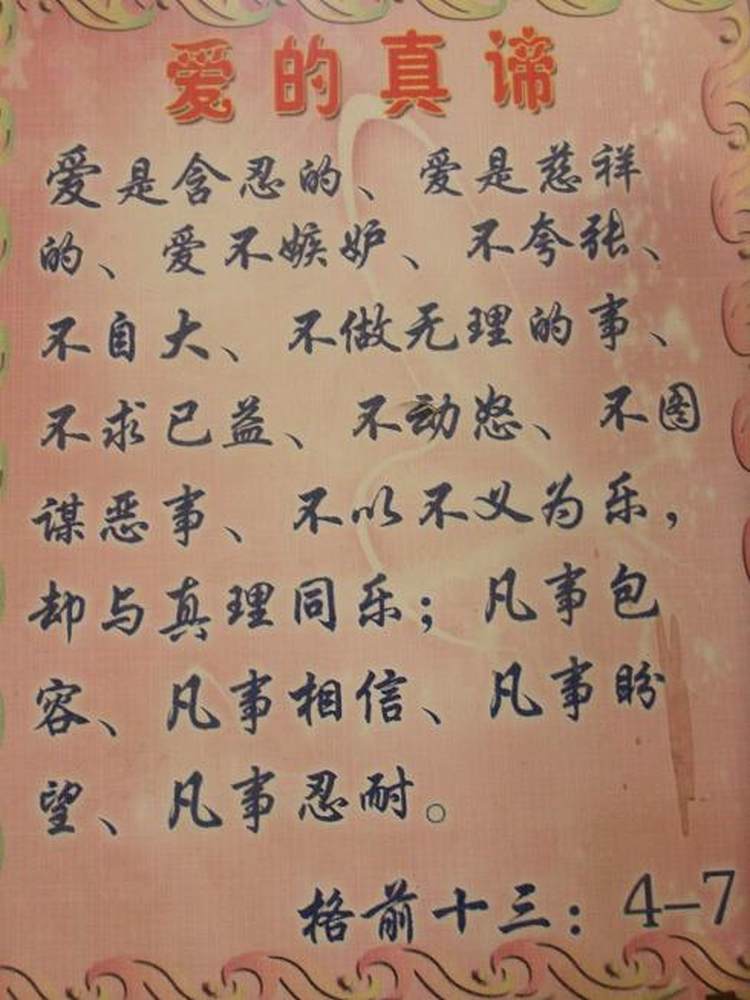 爱的真谛
爱是含忍的、爱是慈祥
的、爱不嫉妒、不夸张、
不自大、不做无理的事、
不求已益、不动怒、不图
谋恶事、不以不义为乐，
却与真理同乐；凡事包
容、凡事相信、凡事盼
望、凡事忍耐。
格前十三：4-7